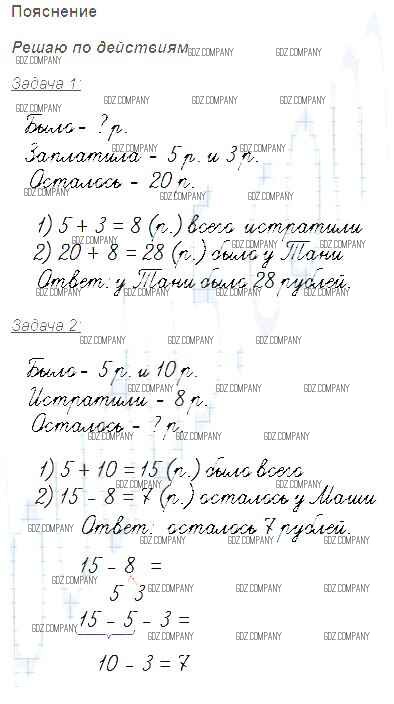 Пояснение
Решаю по действиям
GDZ.COMPANY GDZ.COMPANY
GDZ.COMPANY
Задача 1:
GDZ.COMPANY GDZ.COMPANY GDZ.COMPANY
GDZ.COMPANY
Было - ? р.
Заплатила - 5 р. и 3 р.
GDZ.COMPANY GDZ.COMPANY
Осталось - 20 р.
GDZ.COMPANY
1) 5 + 3 = 8 (р.) всего истратили
GDZ.COMPANY GDZ.COMPANY GDZ.COMPANY
2) 20 + 8 = 28 (р.) было у Тани
GDZ.COMPANY GDZ.COMPANY GDZ.COMPANY
Ответ: у Тани было 28 рублей.
GDZ.COMPANY GDZ.COMPANY GDZ.COMPANY
Задача 2:
GDZ.COMPANY GDZ.COMPANY GDZ.COMPANY
Было - 5 р. и 10 р.
GDZ.COMPANY GDZ.COMPANY GDZ.COMPANY
Истратили - 8 р.
Осталось - ? р.
GDZ.COMPANY GDZ.COMPANY GDZ.COMPANY
1) 5 + 10 = 15 (р.) было всего
GDZ.COMPANY GDZ.COMPANY GDZ.COMPANY
2) 15 - 8 = 7 (р.) осталось у Маши
Ответ: осталось 7 рублей.
GDZ.COMPANY GDZ.COMPANY GDZ.COMPANY
15 - 8 =
GDZ.COMPANY GDZ.COMPANY GDZ.COMPANY GDZ.COMPANY
5 3
15 - 5 - 3 =
GDZ.COMPANY GDZ.COMPANY GDZ.COMPANY GDZ.COMPANY
10 - 3 = 7
GDZ.COMPANY GDZ.COMPANY GDZ.COMPANY